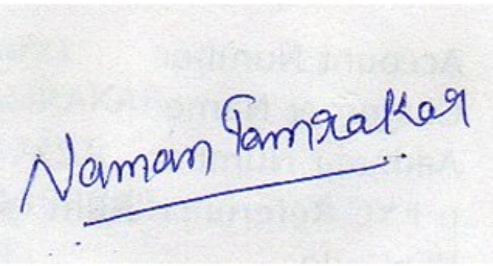 Naman Tamrakar